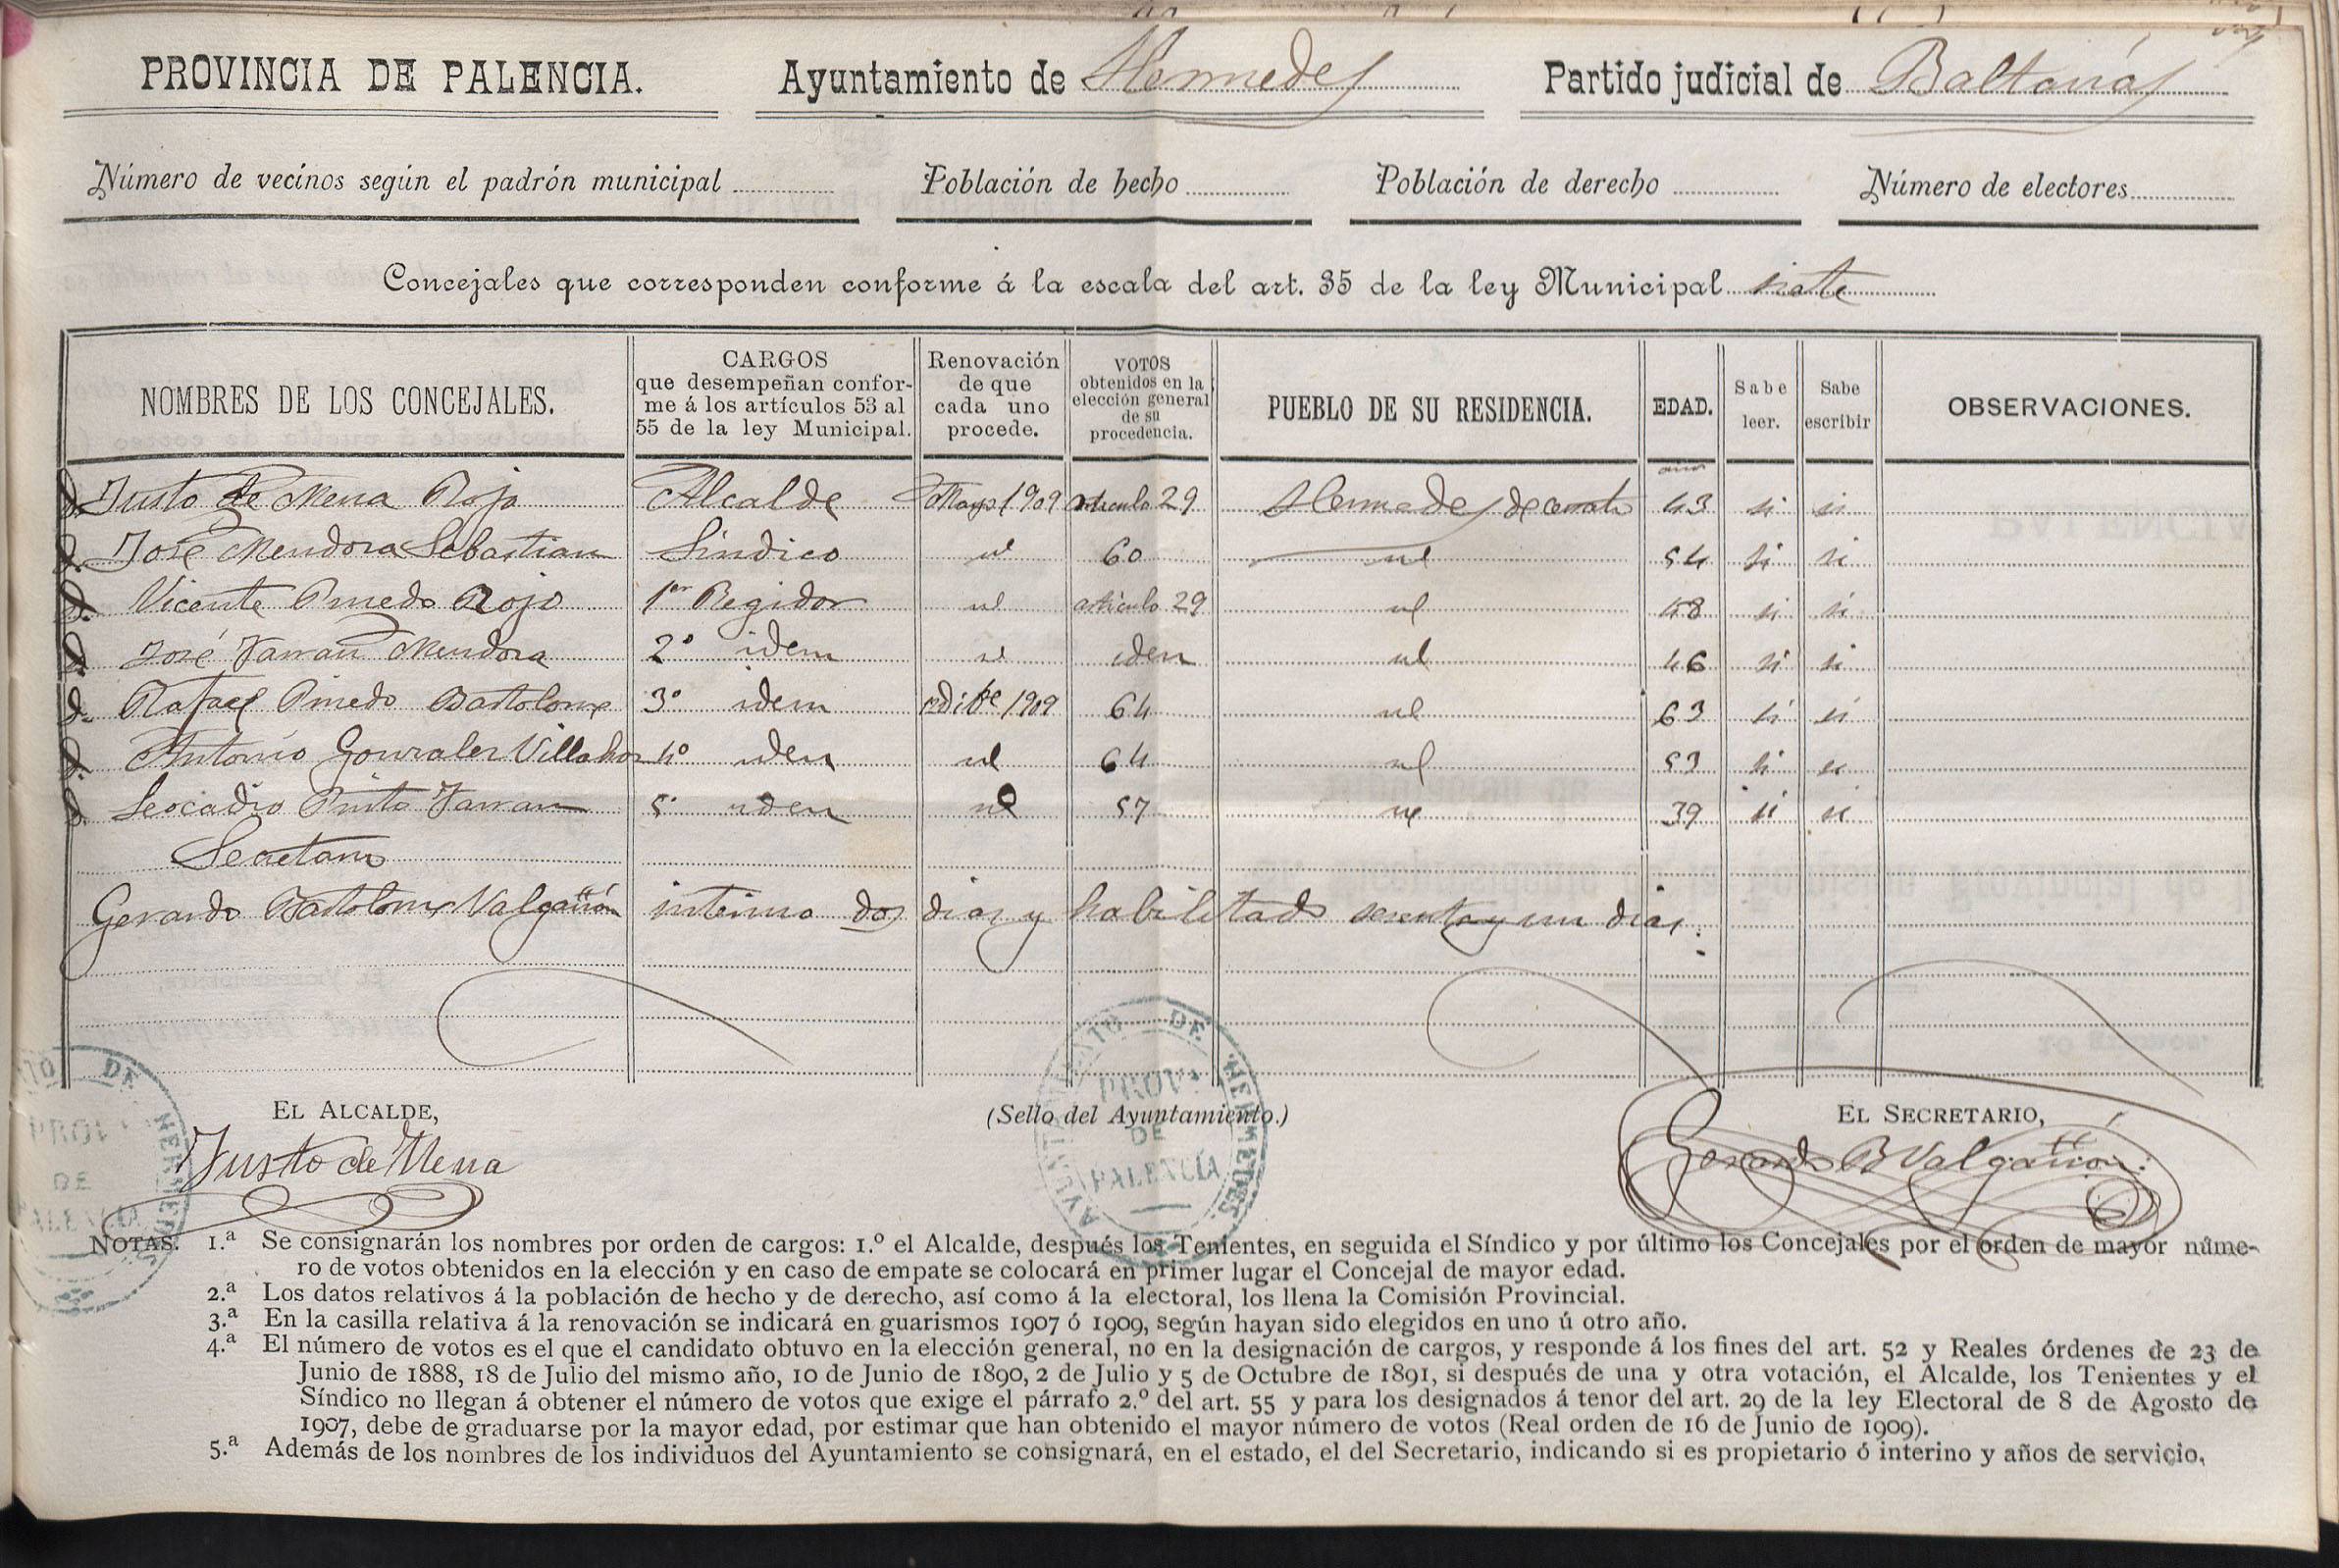 PROVINCIA DE PALENCIA. Ayuntamiento de Hermedes Partido judicial de Baltanás
Número de vecinos según el padrón municipal Población de hecho Población de derecho Número de electores
Concejales que corresponden conforme á la escala del art. 35 de la ley Municipal siete
NOMBRES DE LOS CONCEJALES.
CARGOS
que desempeñan confor-
me á los artículos 53 al
55 de la ley Municipal.
Renovación
de que
cada uno
procede.
VOTOS
obtenidos en la
elección general
de su
procedencia.
PUEBLO DE SU RESIDENCIA.
EDAD.
Sabe
leer.
Sabe
escribir
OBSERVACIONES.
años
D. Justo de Mena Rojo Alcalde Mayo 1909 articulo 29 Hermedes de cerrato 43 si si
D. José Mendoza Sebastian Sindico id 60 id 54 si si
D. Vicente Pinedo Rojo 1er Regidor id articulo 29 id 48 si si
D. José Farran Mendoza 2º idem id iden id 46 si si
D. Rafael Pinedo Bartolome 3º idem dibe 1909 64 id 63 si si
D. Antonio Gonzalez Villahoz 4º iden id 64 id 53 si si
D. Leocadio Pinto Farran 5º iden id 57 id 39 si si
Secretario
Gerardo Bartolome Valgañón interino dos dias y habilitado sesenta y un dias.
EL ALCALDE, (Sello del Ayuntamiento.) EL SECRETARIO,
Justo de Mena Gerardo B Valgañón
AYUNTAMIENTO DE HERMEDES.
PROV.ª
DE
PALENCIA
NTO DE HERMEDES
PROV.ª
DE
PALENCIA
NOTAS. 1.ª Se consignarán los nombres por orden de cargos: 1.º el Alcalde, después los Tenientes, en seguida el Síndico y por último los Concejales por el orden de mayor núme-
ro de votos obtenidos en la elección y en caso de empate se colocará en primer lugar el Concejal de mayor edad.
2.ª Los datos relativos á la población de hecho y de derecho, así como á la electoral, los llena la Comisión Provincial.
3.ª En la casilla relativa á la renovación se indicará en guarismos 1907 ó 1909, según hayan sido elegidos en uno ú otro año.
4.ª El número de votos es el que el candidato obtuvo en la elección general, no en la designación de cargos, y responde á los fines del art. 52 y Reales órdenes de 23 de
Junio de 1888, 18 de Julio del mismo año, 10 de Junio de 1890, 2 de Julio y 5 de Octubre de 1891, si después de una y otra votación, el Alcalde, los Tenientes y el
Síndico no llegan á obtener el número de votos que exige el párrafo 2.º del art. 55 y para los designados á tenor del art. 29 de la ley Electoral de 8 de Agosto de
1907, debe de graduarse por la mayor edad, por estimar que han obtenido el mayor número de votos (Real orden de 16 de Junio de 1909).
5.ª Además de los nombres de los individuos del Ayuntamiento se consignará, en el estado, el del Secretario, indicando si es propietario ó interino y años de servicio.